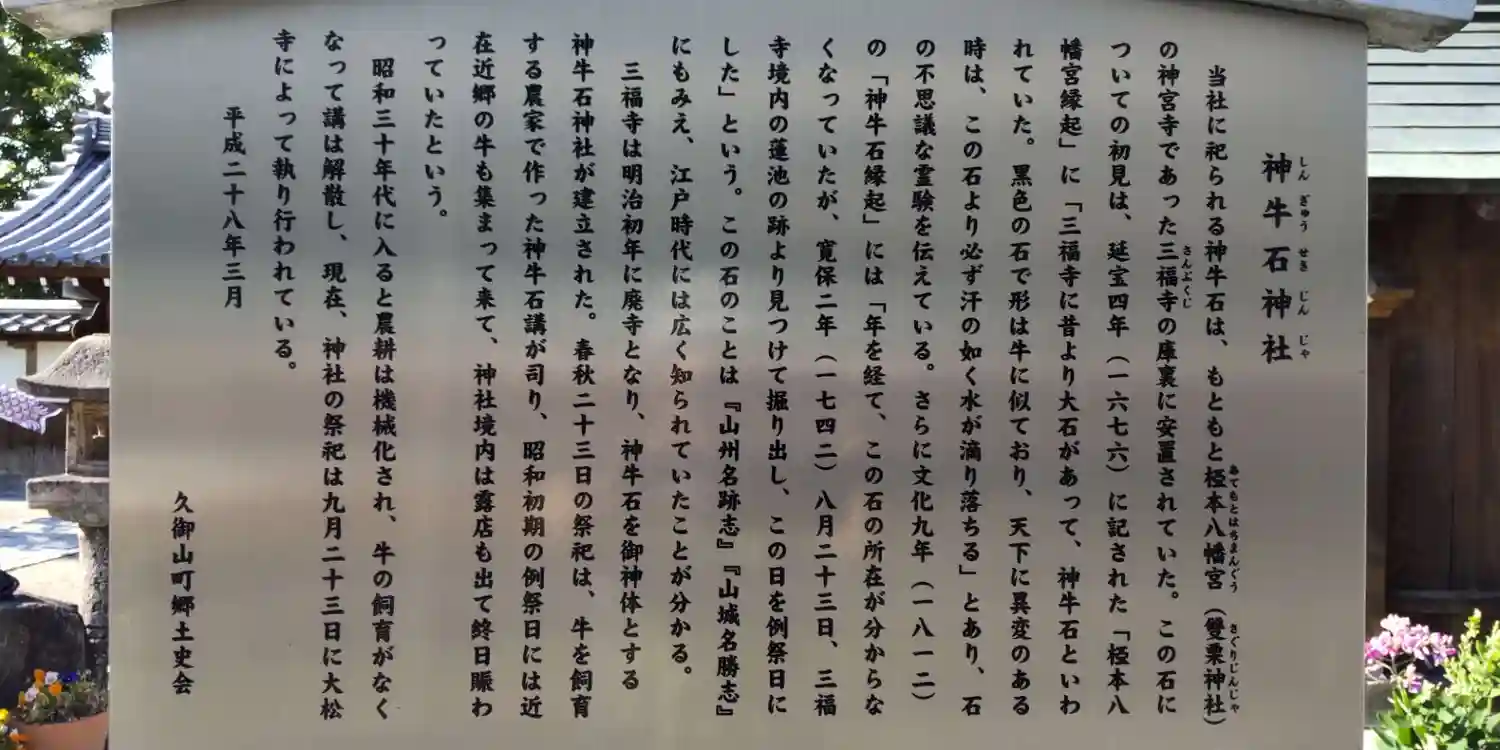 神牛石神社
しんぎゅうせきじんじゃ
当社に祀られる神牛石は、もともと椏本八幡宮（雙栗神社）
あてもとはちまんぐう
さぐりじんじゃ
の神宮寺であった三福寺の庫裏に安置されていた。この石に
さんぷくじ
ついての初見は、延宝四年（一六七六）に記された「椏本八
幡宮縁起」に「三福寺に昔より大石があって、神牛石といわ
れていた。黒色の石で形は牛に似ており、天下に異変のある
時は、この石より必ず汗の如く水が滴り落ちる」とあり、石
の不思議な霊験を伝えている。さらに文化九年（一八一二）
の「神牛石縁起」には「年を経て、この石の所在が分からな
くなっていたが、寛保二年（一七四二）八月二十三日、三福
寺境内の蓮池の跡より見つけて掘り出し、この日を例祭日に
した」という。この石のことは『山州名跡志』『山城名勝志』
にもみえ、江戸時代には広く知られていたことが分かる。
三福寺は明治初年に廃寺となり、神牛石を御神体とする
神牛石神社が建立された。春秋二十三日の祭祀は、牛を飼育
する農家で作った神牛石講が司り、昭和初期の例祭日には近
在近郷の牛も集まって来て、神社境内は露店も出て終日賑わ
っていたという。
昭和三十年代に入ると農耕は機械化され、牛の飼育がなく
なって講は解散し、現在、神社の祭祀は九月二十三日に大松
寺によって執り行われている。
平成二十八年三月
久御山町郷土史会